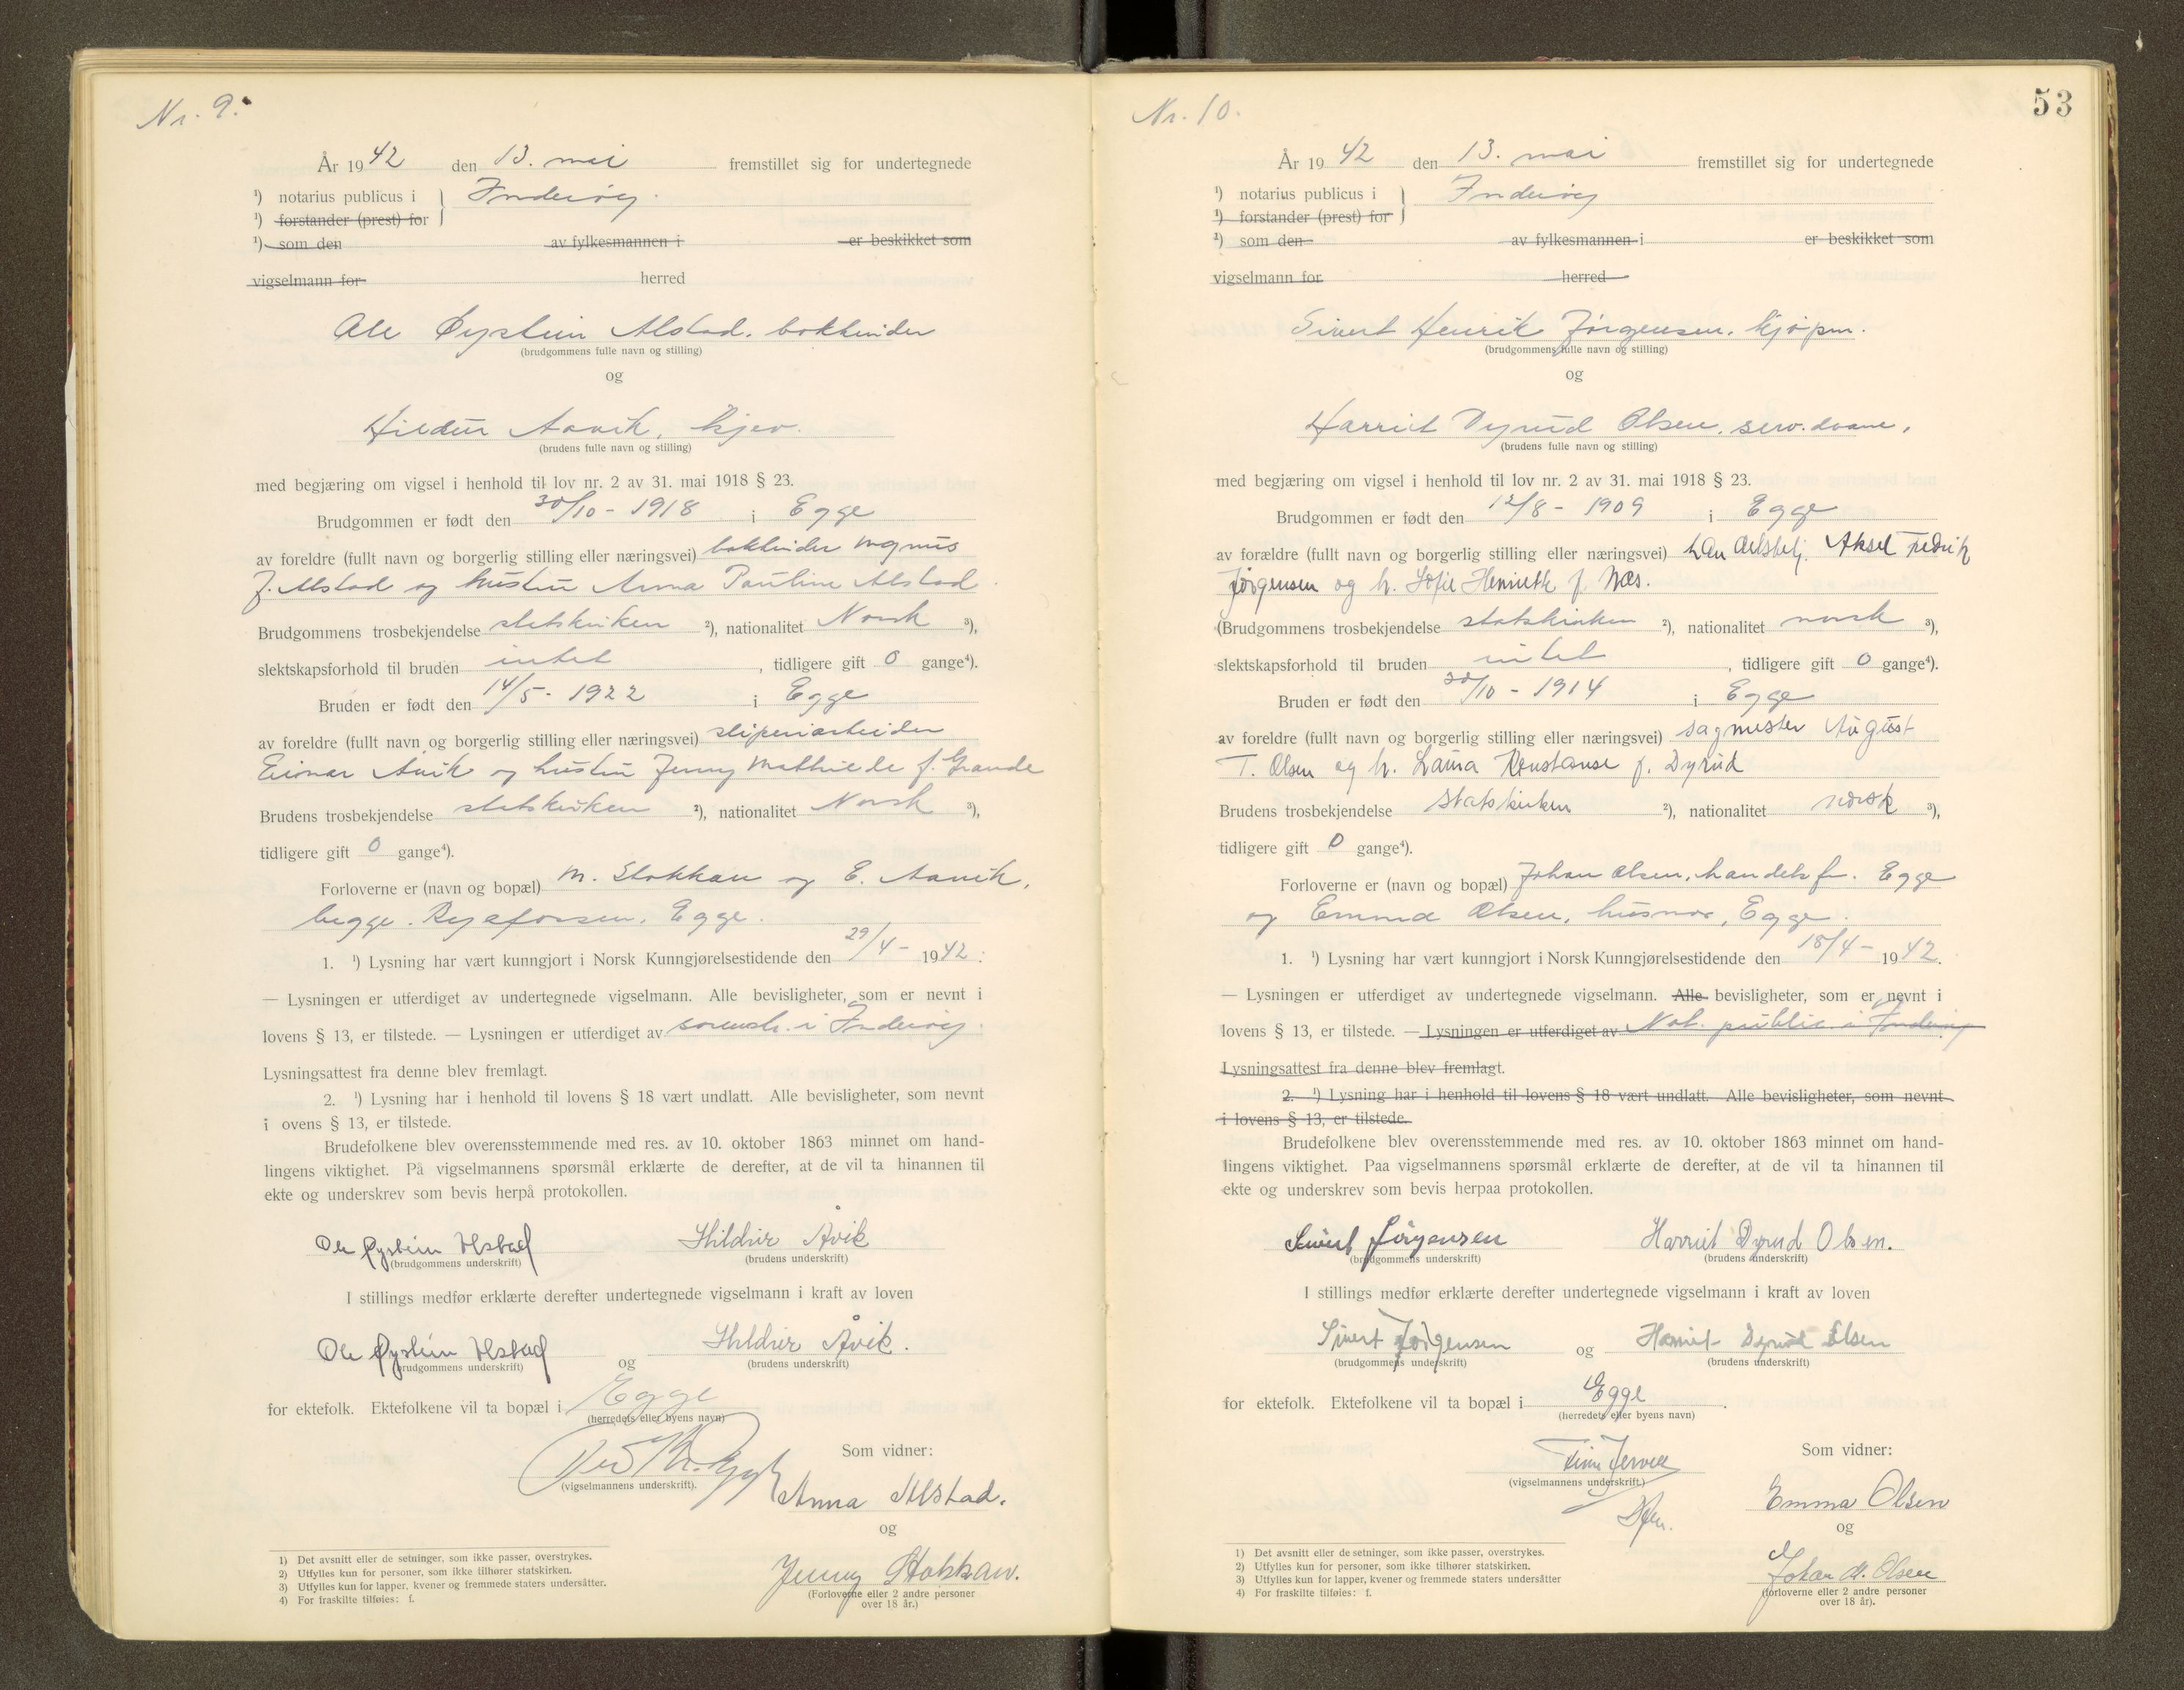 Nr. 9.
År 1942 den 13. mai fremstillet sig for undertegnede
¹) notarius publicus i } Inderøy.
¹) forstander (prest) for
¹) som den av fylkesmannen i er beskikket som
vigselmann for herred
Ole Øystein Alstad, bokbinder
(brudgommens fulle navn og stilling)
og
Hildur Aavik, hjev.
(brudens fulle navn og stilling)
med begjæring om vigsel i henhold til lov nr. 2 av 31. mai 1918 § 23.
Brudgommen er født den 30/10 - 1918 i Egge
av foreldre (fullt navn og borgerlig stilling eller næringsvei) bokbinder Magnus
J. Alstad og hustru Anna Pauline Alstad
Brudgommens trosbekjendelse statskirken ²), nationalitet Norsk ³),
slektskapsforhold til bruden intet , tidligere gift 0 gange⁴).
Bruden er født den 14/5 - 1922 i Egge
av foreldre (fullt navn og borgerlig stilling eller næringsvei) sliperiarbeider
Einar Avik og hustru Jenny Mathilde f. Grande
Brudens trosbekjendelse statskirken ²), nationalitet Norsk ³),
tidligere gift 0 gange⁴).
Forloverne er (navn og bopæl) M. Stokkan og E. Aavik,
begge Byafossen, Egge.
1. ¹) Lysning har vært kunngjort i Norsk Kunngjørelsestidende den 29/4 - 1942.
— Lysningen er utferdiget av undertegnede vigselmann. Alle bevisligheter, som er nevnt i
lovens § 13, er tilstede. — Lysningen er utferdiget av sorensk. i Inderøy.
Lysningsattest fra denne blev fremlagt.
2. ¹) Lysning har i henhold til lovens § 18 vært undlatt. Alle bevisligheter, som nevnt
i ovens § 13, er tilstede.
Brudefolkene blev overensstemmende med res. av 10. oktober 1863 minnet om hand-
lingens viktighet. På vigselmannens spørsmål erklærte de derefter, at de vil ta hinannen til
ekte og underskrev som bevis herpå protokollen.
Ole Øystein Alstad Hildur Åvik
(brudgommens underskrift) (brudens underskrift)
I stillings medfør erklærte derefter undertegnede vigselmann i kraft av loven
Ole Øystein Alstad og Hildur Åvik.
(brudgommens underskrift) (brudens underskrift)
for ektefolk. Ektefolkene vil ta bopæl i Egge
(herredets eller byens navn)
Som vidner:
(vigselmannens underskrift).
Anna Alstad.
og
Jenny Stokkan.
(Forloverne eller 2 andre personer
over 18 år.)
1) Det avsnitt eller de setninger, som ikke passer, overstrykes.
2) Utfylles kun for personer, som ikke tilhører statskirken.
3) Utfylles kun for lapper, kvener og fremmede staters undersåtter.
4) For fraskilte tilføies: f.
53
Nr. 10.
År 1942 den 13. mai fremstillet sig for undertegnede
¹) notarius publicus i } Inderøy
¹) forstander (prest) for
²) som den av fylkesmannen i er beskikket som
vigselmann for herred
Sivert Henrik Jørgensen, kjøpm.
(brudgommens fulle navn og stilling)
og
Harriet Dyrud Olsen, serv.dame,
(brudens fulle navn og stilling)
med begjæring om vigsel i henhold til lov nr. 2 av 31. mai 1918 § 23.
Brudgommen er født den 12/8 - 1909 i Egge
av forældre (fullt navn og borgerlig stilling eller næringsvei) Aksel Fredrik
Jørgensen og h. Sofie Henriette f. Næs.
(Brudgommens trosbekjendelse statskirken ²), nationalitet norsk ³),
slektskapsforhold til bruden intet , tidligere gift 0 gange⁴).
Bruden er født den 30/10 - 1914 i Egge
av foreldre (fullt navn og borgerlig stilling eller næringsvei) sagmester August
T. Olsen og h. Laura Konstanse f. Dyrud
Brudens trosbekjendelse statskirken ²), nationalitet norsk ³),
tidligere gift 0 gange⁴).
Forloverne er (navn og bopæl) Johan Olsen, handelsf. Egge
og Emma Olsen, husmor, Egge.
1. ¹) Lysning har vært kunngjort i Norsk Kunngjørelsestidende den 18/4 - 1942.
— Lysningen er utferdiget av undertegnede vigselmann. Alle bevisligheter, som er nevnt i
lovens § 13, er tilstede. — Lysningen er utferdiget av Not. public. i Inderøy
Lysningsattest fra denne blev fremlagt.
2. ¹) Lysning har i henhold til lovens § 18 vært undlatt. Alle bevisligheter, som nevnt
i lovens § 13, er tilstede.
Brudefolkene blev overensstemmende med res. av 10. oktober 1863 minnet om hand-
lingens viktighet. Paa vigselmannens spørsmål erklærte de derefter, at de vil ta hinannen til
ekte og underskrev som bevis herpaa protokollen.
Sivert Jørgensen Harriet Dyrud Olsen.
(brudgommens underskrift) (brudens underskrift)
I stillings medfør erklærte derefter undertegnede vigselmann i kraft av loven
Sivert Jørgensen og Harriet Dyrud Olsen
(brudgommens underskrift) (brudens underskrift)
for ektefolk. Ektefolkene vil ta bopæl i Egge.
(herredets eller byens navn)
Som vidner:
(vigselmannens underskrift.)
Emma Olsen
og
Johan A. Olsen
(forloverne eller 2 andre personer
over 18 år).
1) Det avsnitt eller de setninger, som ikke passer, overstrykes.
2) Utfylles kun for personer, som ikke tilhører statskirken.
3) Utfylles kun for lapper, kvener og fremmede staters undersåtter
4) For fraskilte tilføies: f.